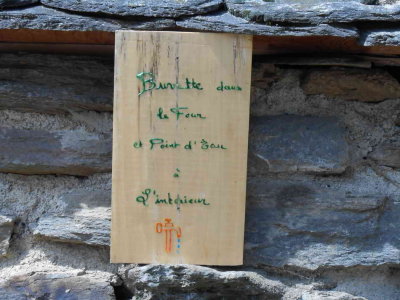 Buvette dans
le Four
et Point d'Eau
à
L'intérieur